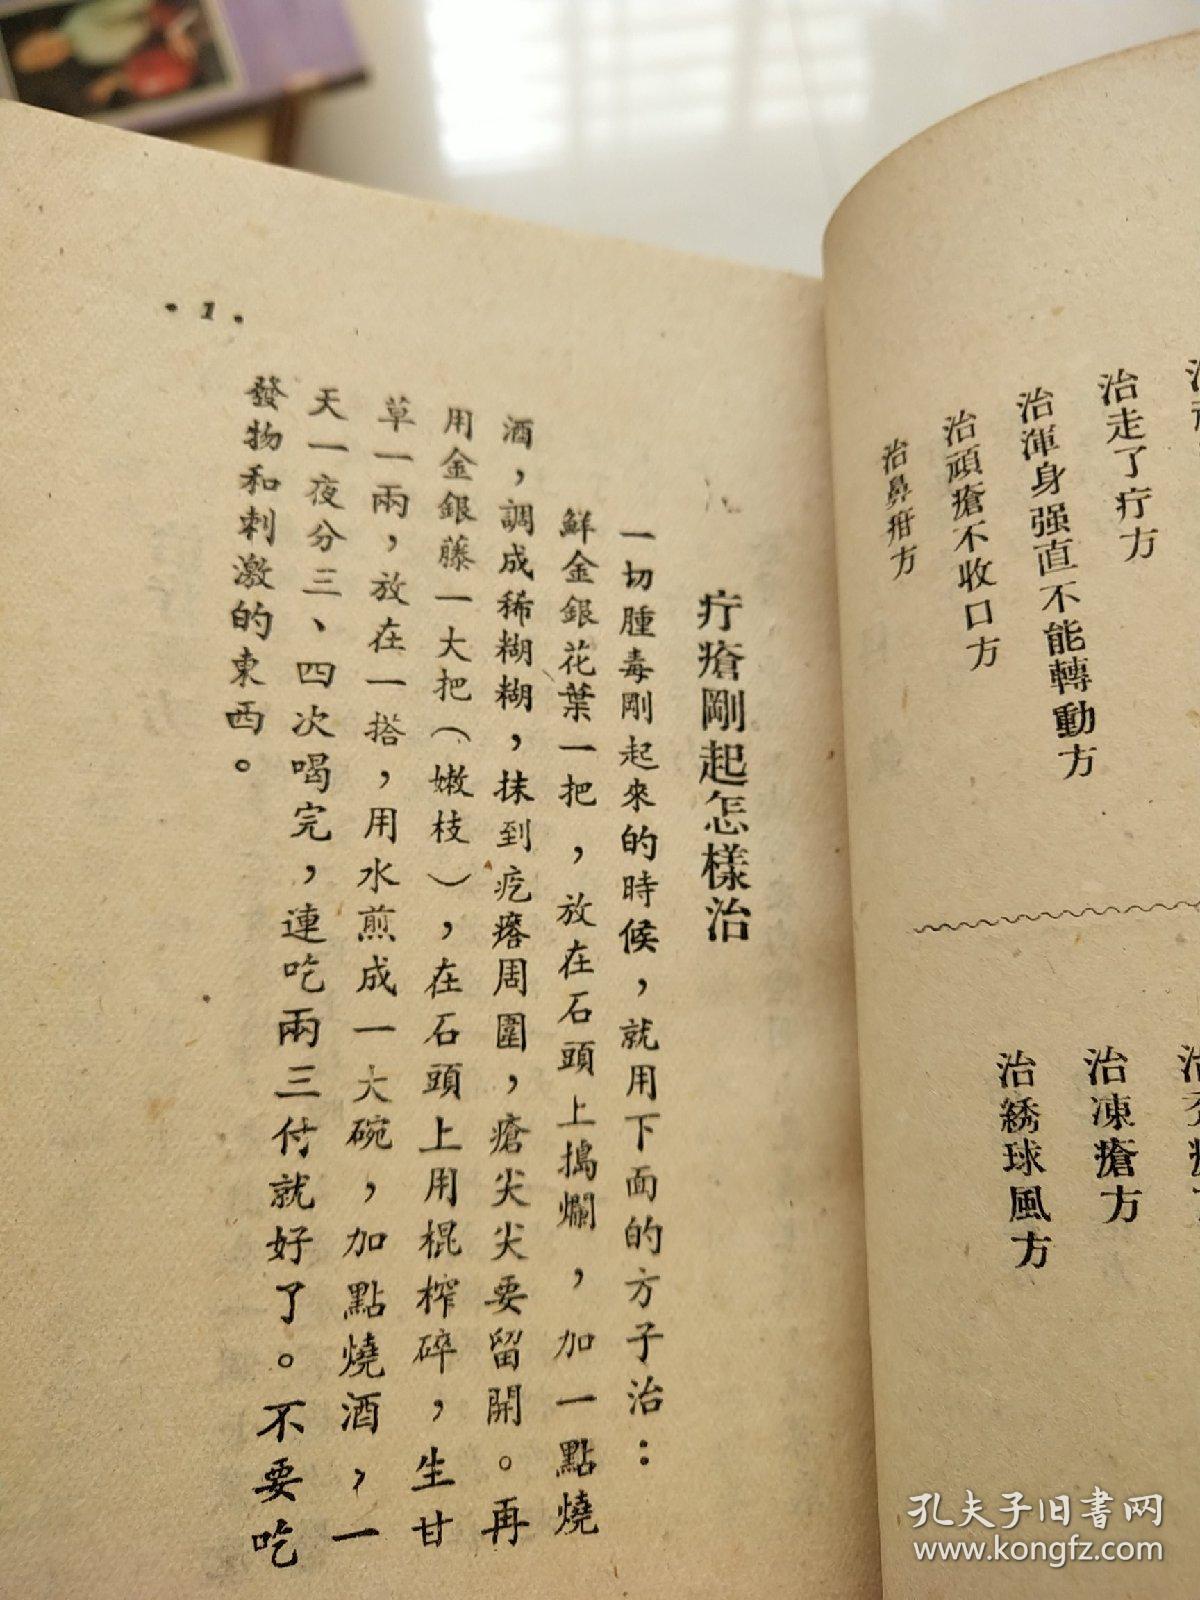 治走了疔方
治渾身强直不能轉動方
治頑瘡不收口方
治鼻疳方
治凍瘡方
治綉球風方
疔瘡剛起怎樣治
一切腫毒剛起來的時候，就用下面的方子治：
鮮金銀花葉一把，放在石頭上搗爛，加一點燒
酒，調成稀糊糊，抹到疙瘩周圍，瘡尖尖要留開。再
用金銀藤一大把（嫩枝），在石頭上用棍榨碎，生甘
草一兩，放在一搭，用水煎成一大碗，加點燒酒，一
天一夜分三、四次喝完，連吃兩三付就好了。不要吃
發物和刺激的東西。
·1·
孔夫子旧书网
www.kongfz.com